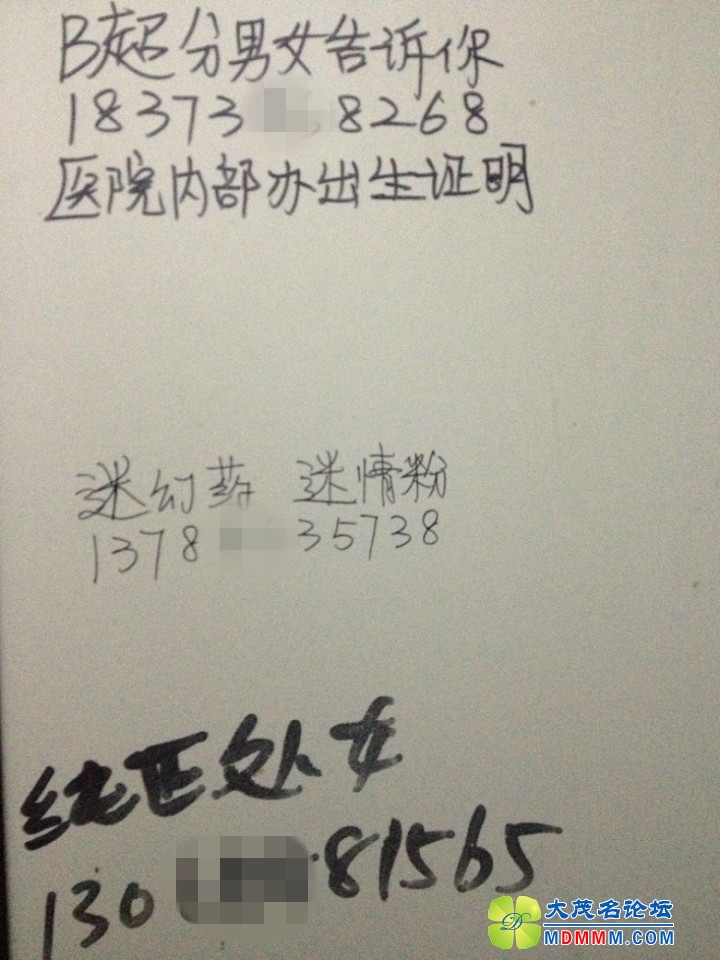 B超分男女告诉你
18373 8268
医院内部办出生证明
迷幻药 迷情粉
1378 35738
纯正处女
130 81565
大茂名论坛
MDMMM.COM